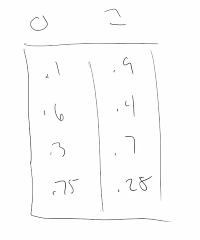 0 1
.1 .9
.6 .4
.3 .7
.75 .28